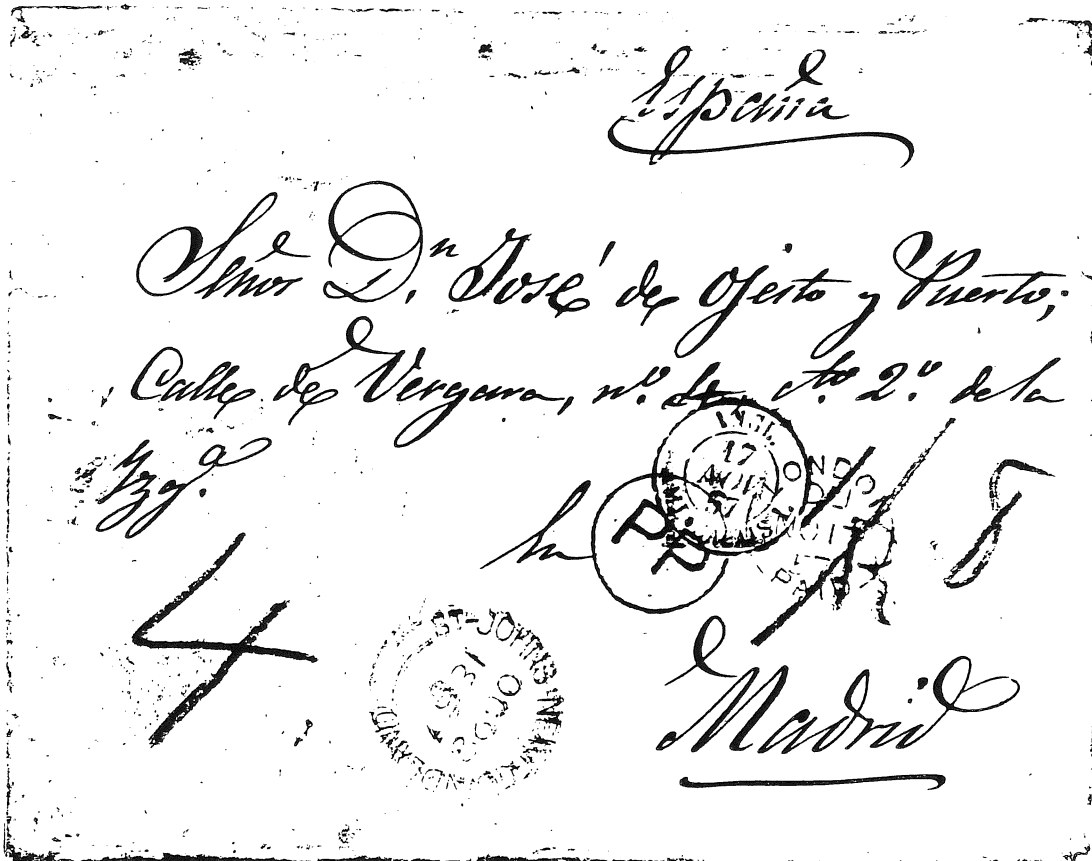 España
Señor Dn. José de Ojesto y Puerto;
Calle de Vergara, nº. cto. 2º. de la
Yzqª.
8
PP
LONDON
PAID
4
ST-JOHNS NEWFOUNDLAND
Madrid